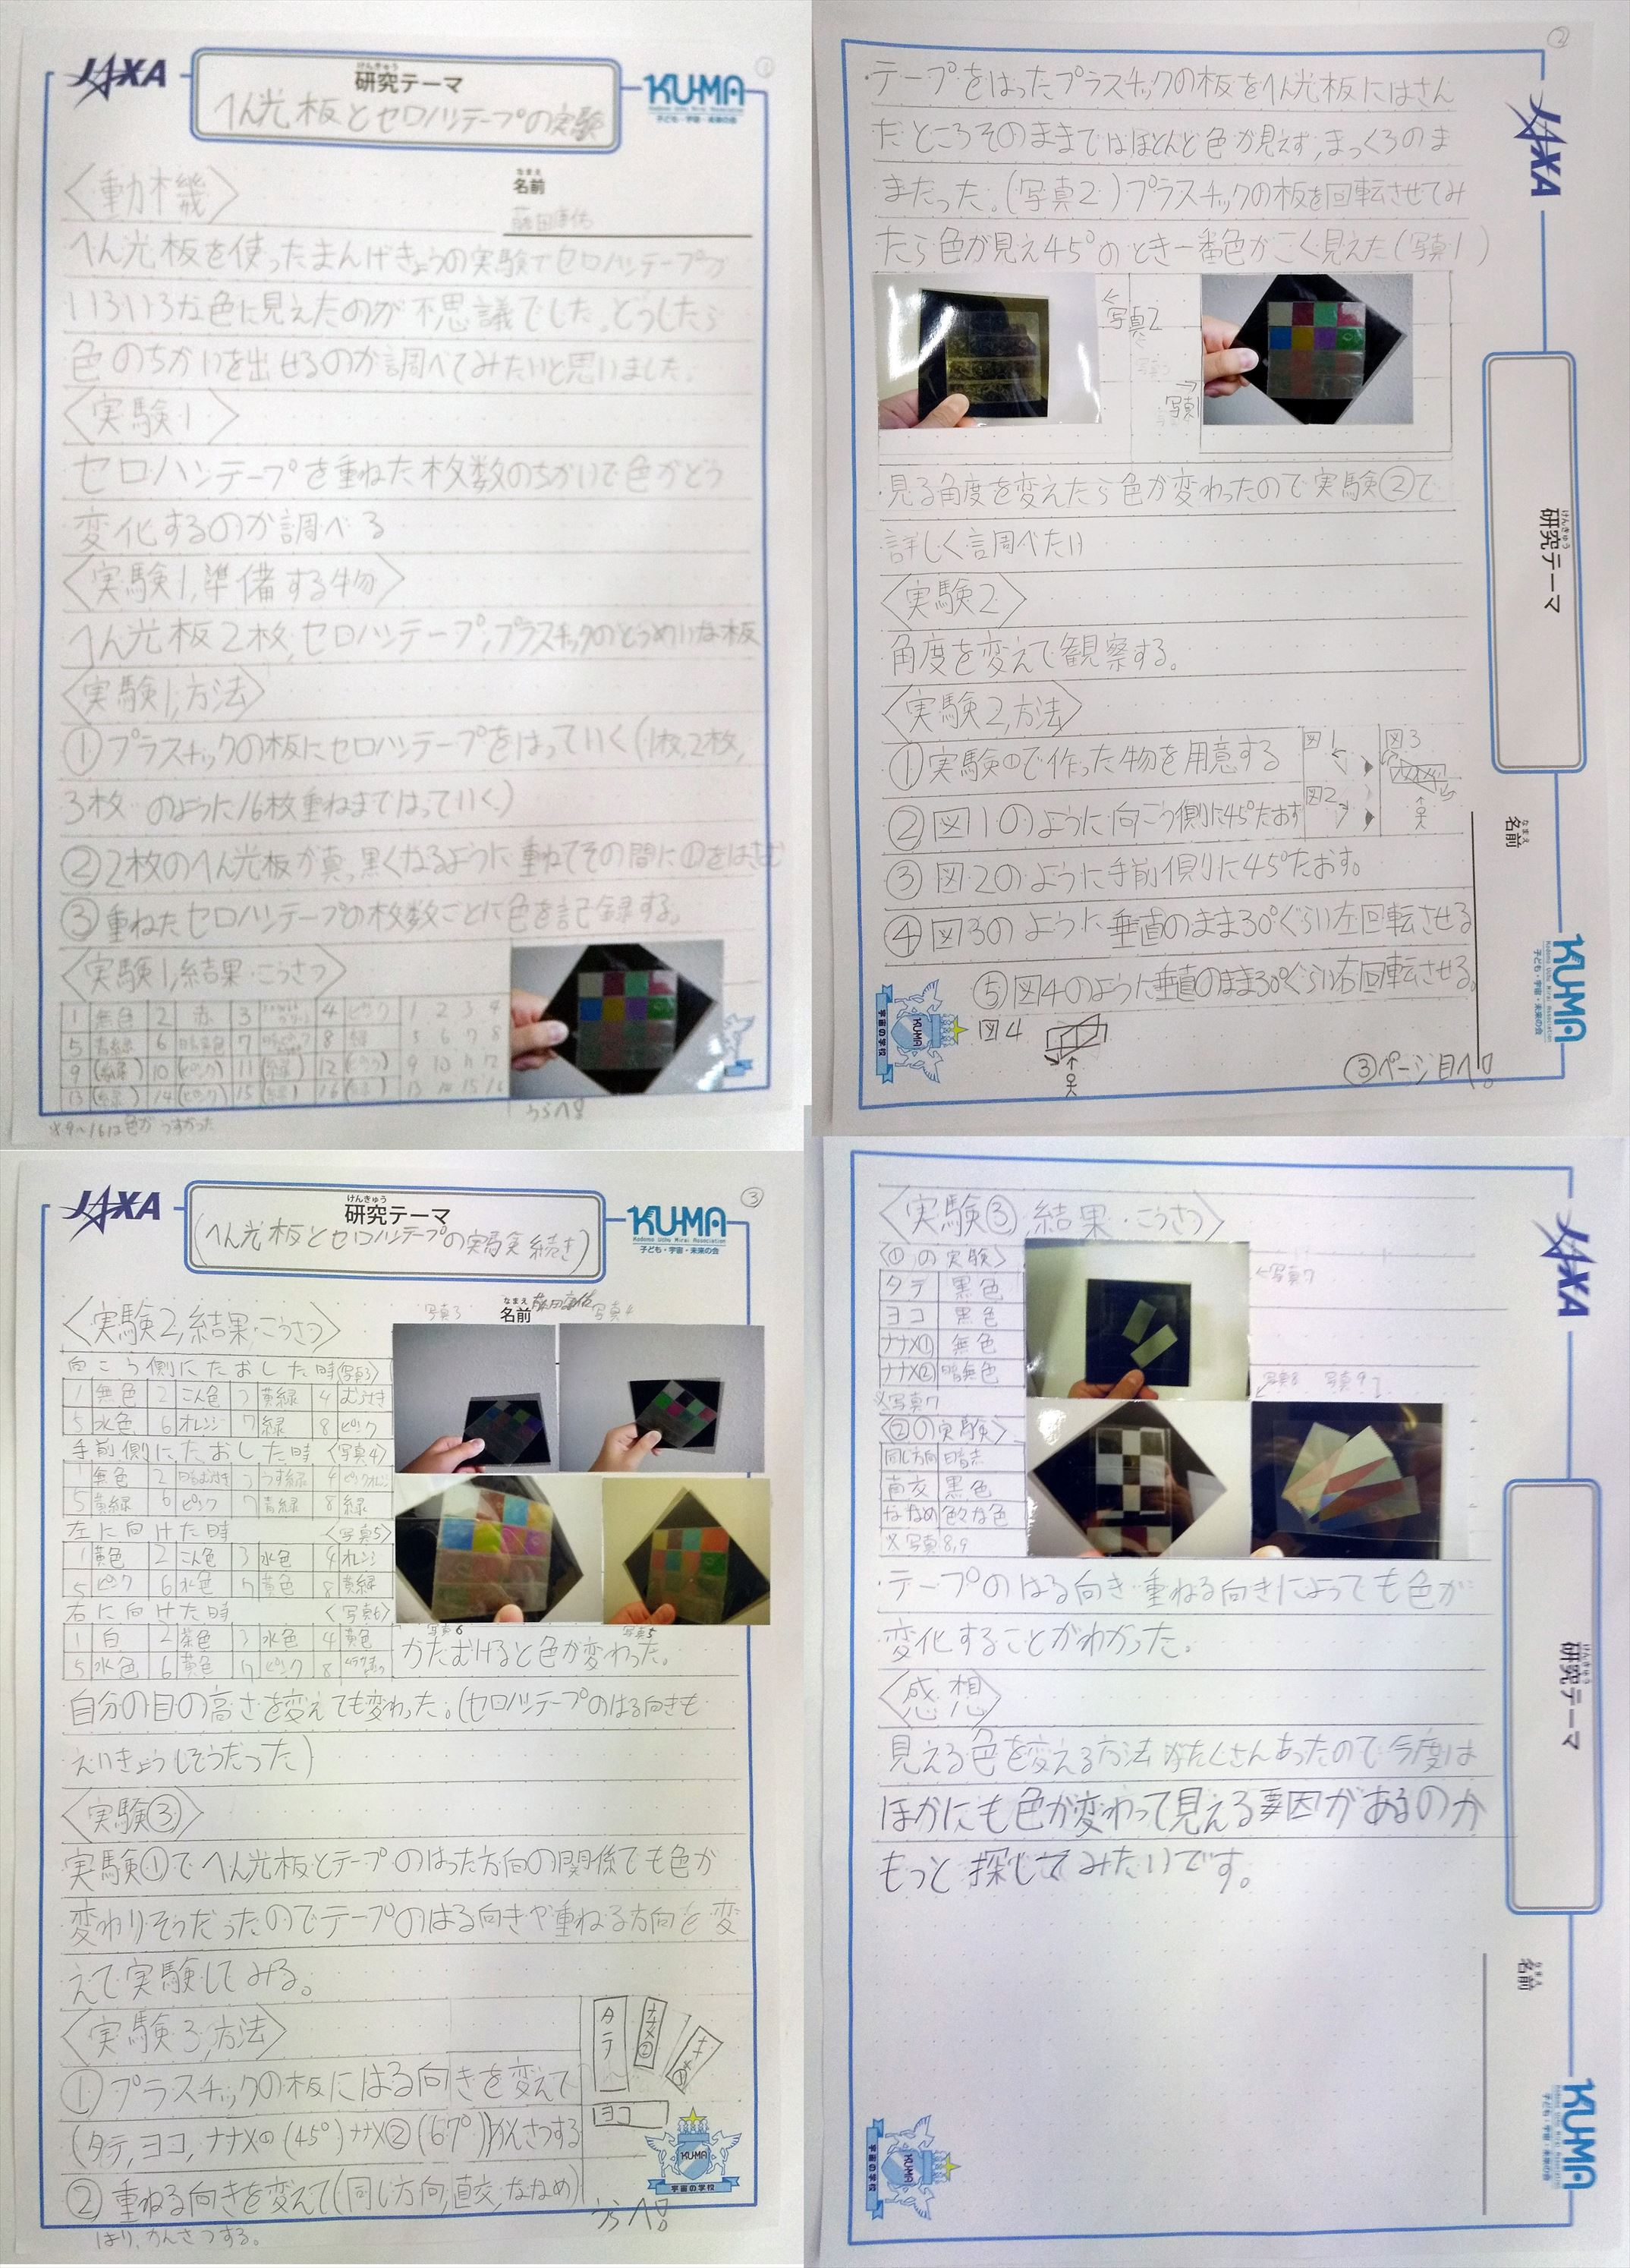 ①
JAXA
けんきゅう
研究テーマ
KU-MA
子ども・宇宙・未来の会
へん光板とセロハンテープの実験
〈動機〉
なまえ
名前
へん光板を使ったまんげきょうの実験でセロハンテープが
いろいろな色に見えたのが不思議でした。どうしたら
色のちがいを出せるのか調べてみたいと思いました。
〈実験1〉
セロハンテープを重ねた枚数のちがいで色がどう
変化するのか調べる
〈実験1,準備する物〉
へん光板2枚,セロハンテープ,プラスチックのとうめいな板
〈実験1,方法〉
①プラスチックの板にセロハンテープをはっていく(1枚,2枚,
3枚 のように16枚重ねまではっていく)
②2枚のへん光板が真っ黒くなるように重ねてその間に①をはさむ
③重ねたセロハンテープの枚数ごとに色を記録する。
〈実験1,結果・こうさつ〉
1 無色 2 赤 3 4 ピンク 1 2 3 4
5 青緑 6 7 8 緑 5 6 7 8
9 (緑) 10 (ピンク) 11 (緑) 12 (ピンク) 9 10 11 12
13 (緑) 14 (ピンク) 15 (緑) 16 (緑) 13 14 15 16
※9〜16は色がうすかった
うらへ!
②
・テープをはったプラスチックの板をへん光板にはさん
だところそのままではほとんど色が見えず,まっくろのま
まだった。(写真2)プラスチックの板を回転させてみ
たら色が見え45°のとき一番色がこく見えた(写真1)
←写真2
→写真1
・見る角度を変えたら色が変わったので実験②で
詳しく調べたい
〈実験2〉
角度を変えて観察する。
〈実験2,方法〉
①実験①で作った物を用意する
②図1のように向こう側に45°たおす
③図2のように手前側に45°たおす。
④図3のように垂直のまま30°ぐらい左回転させる
⑤図4のように垂直のまま30°ぐらい右回転させる。
図1
図2
図3
図4
③ページ目へ!
JAXA
けんきゅう
研究テーマ
なまえ
名前
KU-MA
子ども・宇宙・未来の会
KUMA
宇宙の学校
③
JAXA
けんきゅう
研究テーマ
KU-MA
Kodomo Uchu Mirai Association
子ども・宇宙・未来の会
(へん光板とセロハンテープの実験 続き)
なまえ
名前
〈実験2,結果・こうさつ〉
写真3
写真4
向こう側にたおした時〈写真3〉
1 無色 2 こん色 3 黄緑 4 むらさき
5 水色 6 オレンジ 7 緑 8 ピンク
手前側にたおした時〈写真4〉
1 無色 2 明るむらさき 3 うす緑 4 ピンクオレンジ
5 黄緑 6 ピンク 7 青緑 8 緑
左に向けた時〈写真5〉
1 黄色 2 こん色 3 水色 4 オレンジ
5 ピンク 6 水色 7 黄色 8 黄緑
右に向けた時〈写真6〉
1 白 2 茶色 3 水色 4 黄色
5 水色 6 黄色 7 ピンク 8
写真6
写真5
かたむけると色が変わった。
自分の目の高さを変えても変わった。(セロハンテープのはる向きも
えいきょうしそうだった)
〈実験③〉
実験①でへん光板とテープのはった方向の関係でも色が
変わりそうだったのでテープのはる向きや重ねる方向を変
えて実験してみる。
〈実験3,方法〉
①プラスチックの板にはる向きを変えて
(タテ,ヨコ,ナナメ①(45°)ナナメ②(67°))かんさつする
②重ねる向きを変えて(同じ方向,直交,ななめ)
はり,かんさつする。
タテ
ナナメ②
ナナメ①
ヨコ
KUMA
宇宙の学校
うらへ!
〈実験③,結果・こうさつ〉
〈①の実験〉
タテ 黒色
ヨコ 黒色
ナナメ① 無色
ナナメ② 暗無色
※写真7
←写真7
写真8
写真9
〈②の実験〉
同じ方向 暗赤
直交 黒色
ななめ 色々な色
※写真8,9
・テープのはる向き・重ねる向きによっても色が
変化することがわかった。
〈感想〉
見える色を変える方法がたくさんあったので今度は
ほかにも色が変わって見える要因があるのか
もっと探してみたいです。
JAXA
けんきゅう
研究テーマ
なまえ
名前
KU-MA
子ども・宇宙・未来の会
KUMA
宇宙の学校